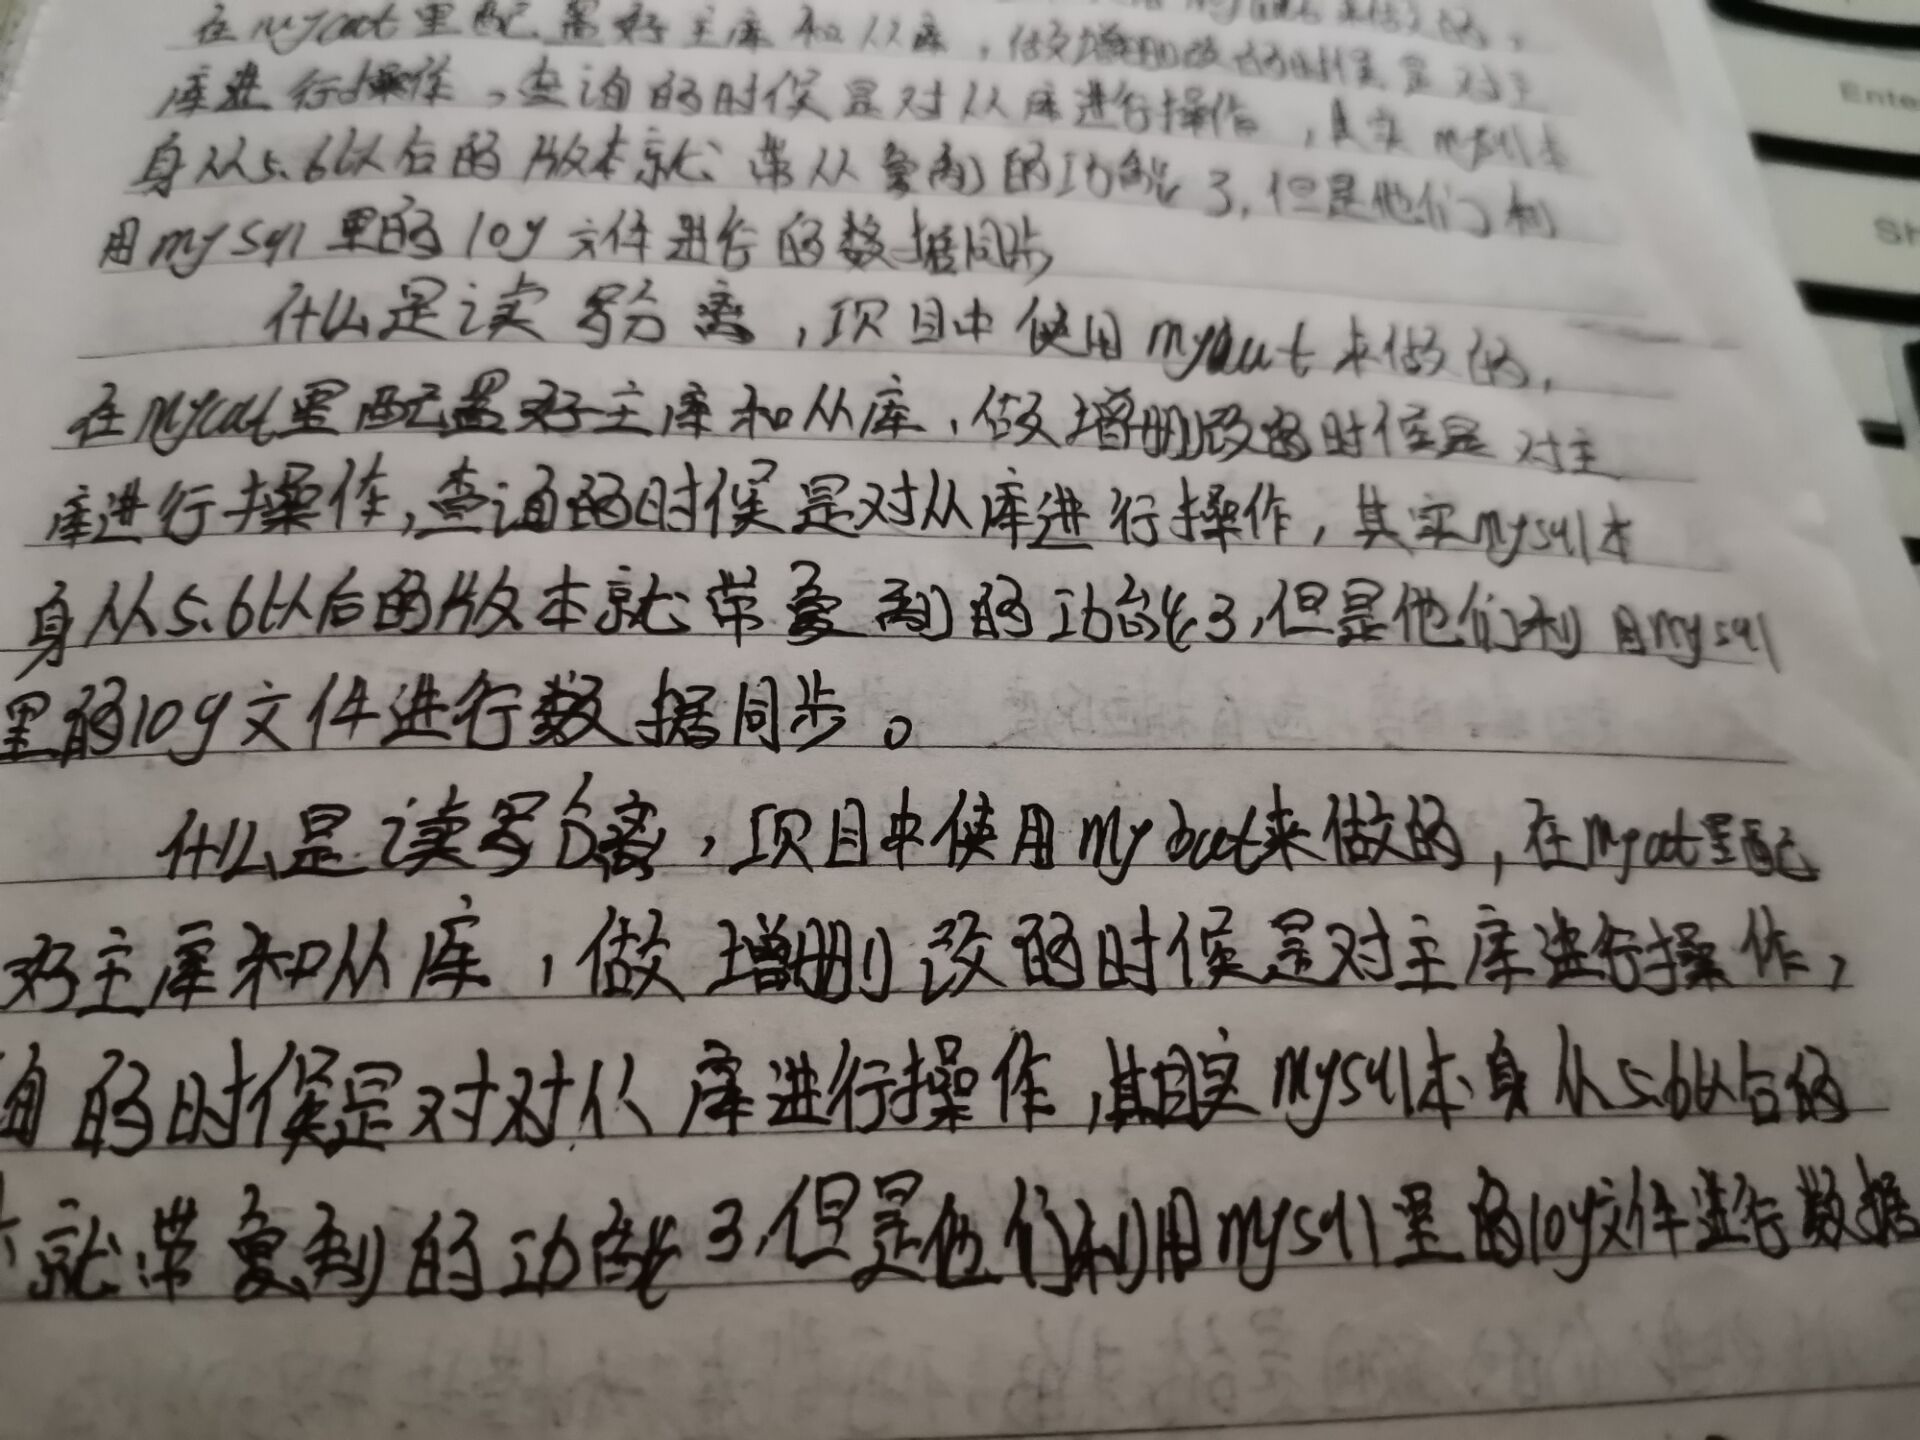 在mycat里配置好主库和从库，做增删改的时候是对主
库进行操作，查询的时候是对从库进行操作，其实mysql本
身从5.6以后的版本就带从复制的功能了，但是他们利
用mysql里的log文件进行的数据同步
什么是读写分离，项目中使用mycat来做的，
在mycat里配置好主库和从库，做增删改的时候是对主
库进行操作，查询的时候是对从库进行操作，其实mysql本
身从5.6以后的版本就带复制的功能了，但是他们利用mysql
里的log文件进行数据同步。
什么是读写分离，项目中使用mycat来做的，在mycat里配
好主库和从库，做增删改的时候是对主库进行操作，
询的时候是对对从库进行操作，其实mysql本身从5.6以后的
就带复制的功能了，但是他们利用mysql里的log文件进行数据
Ente
Sh